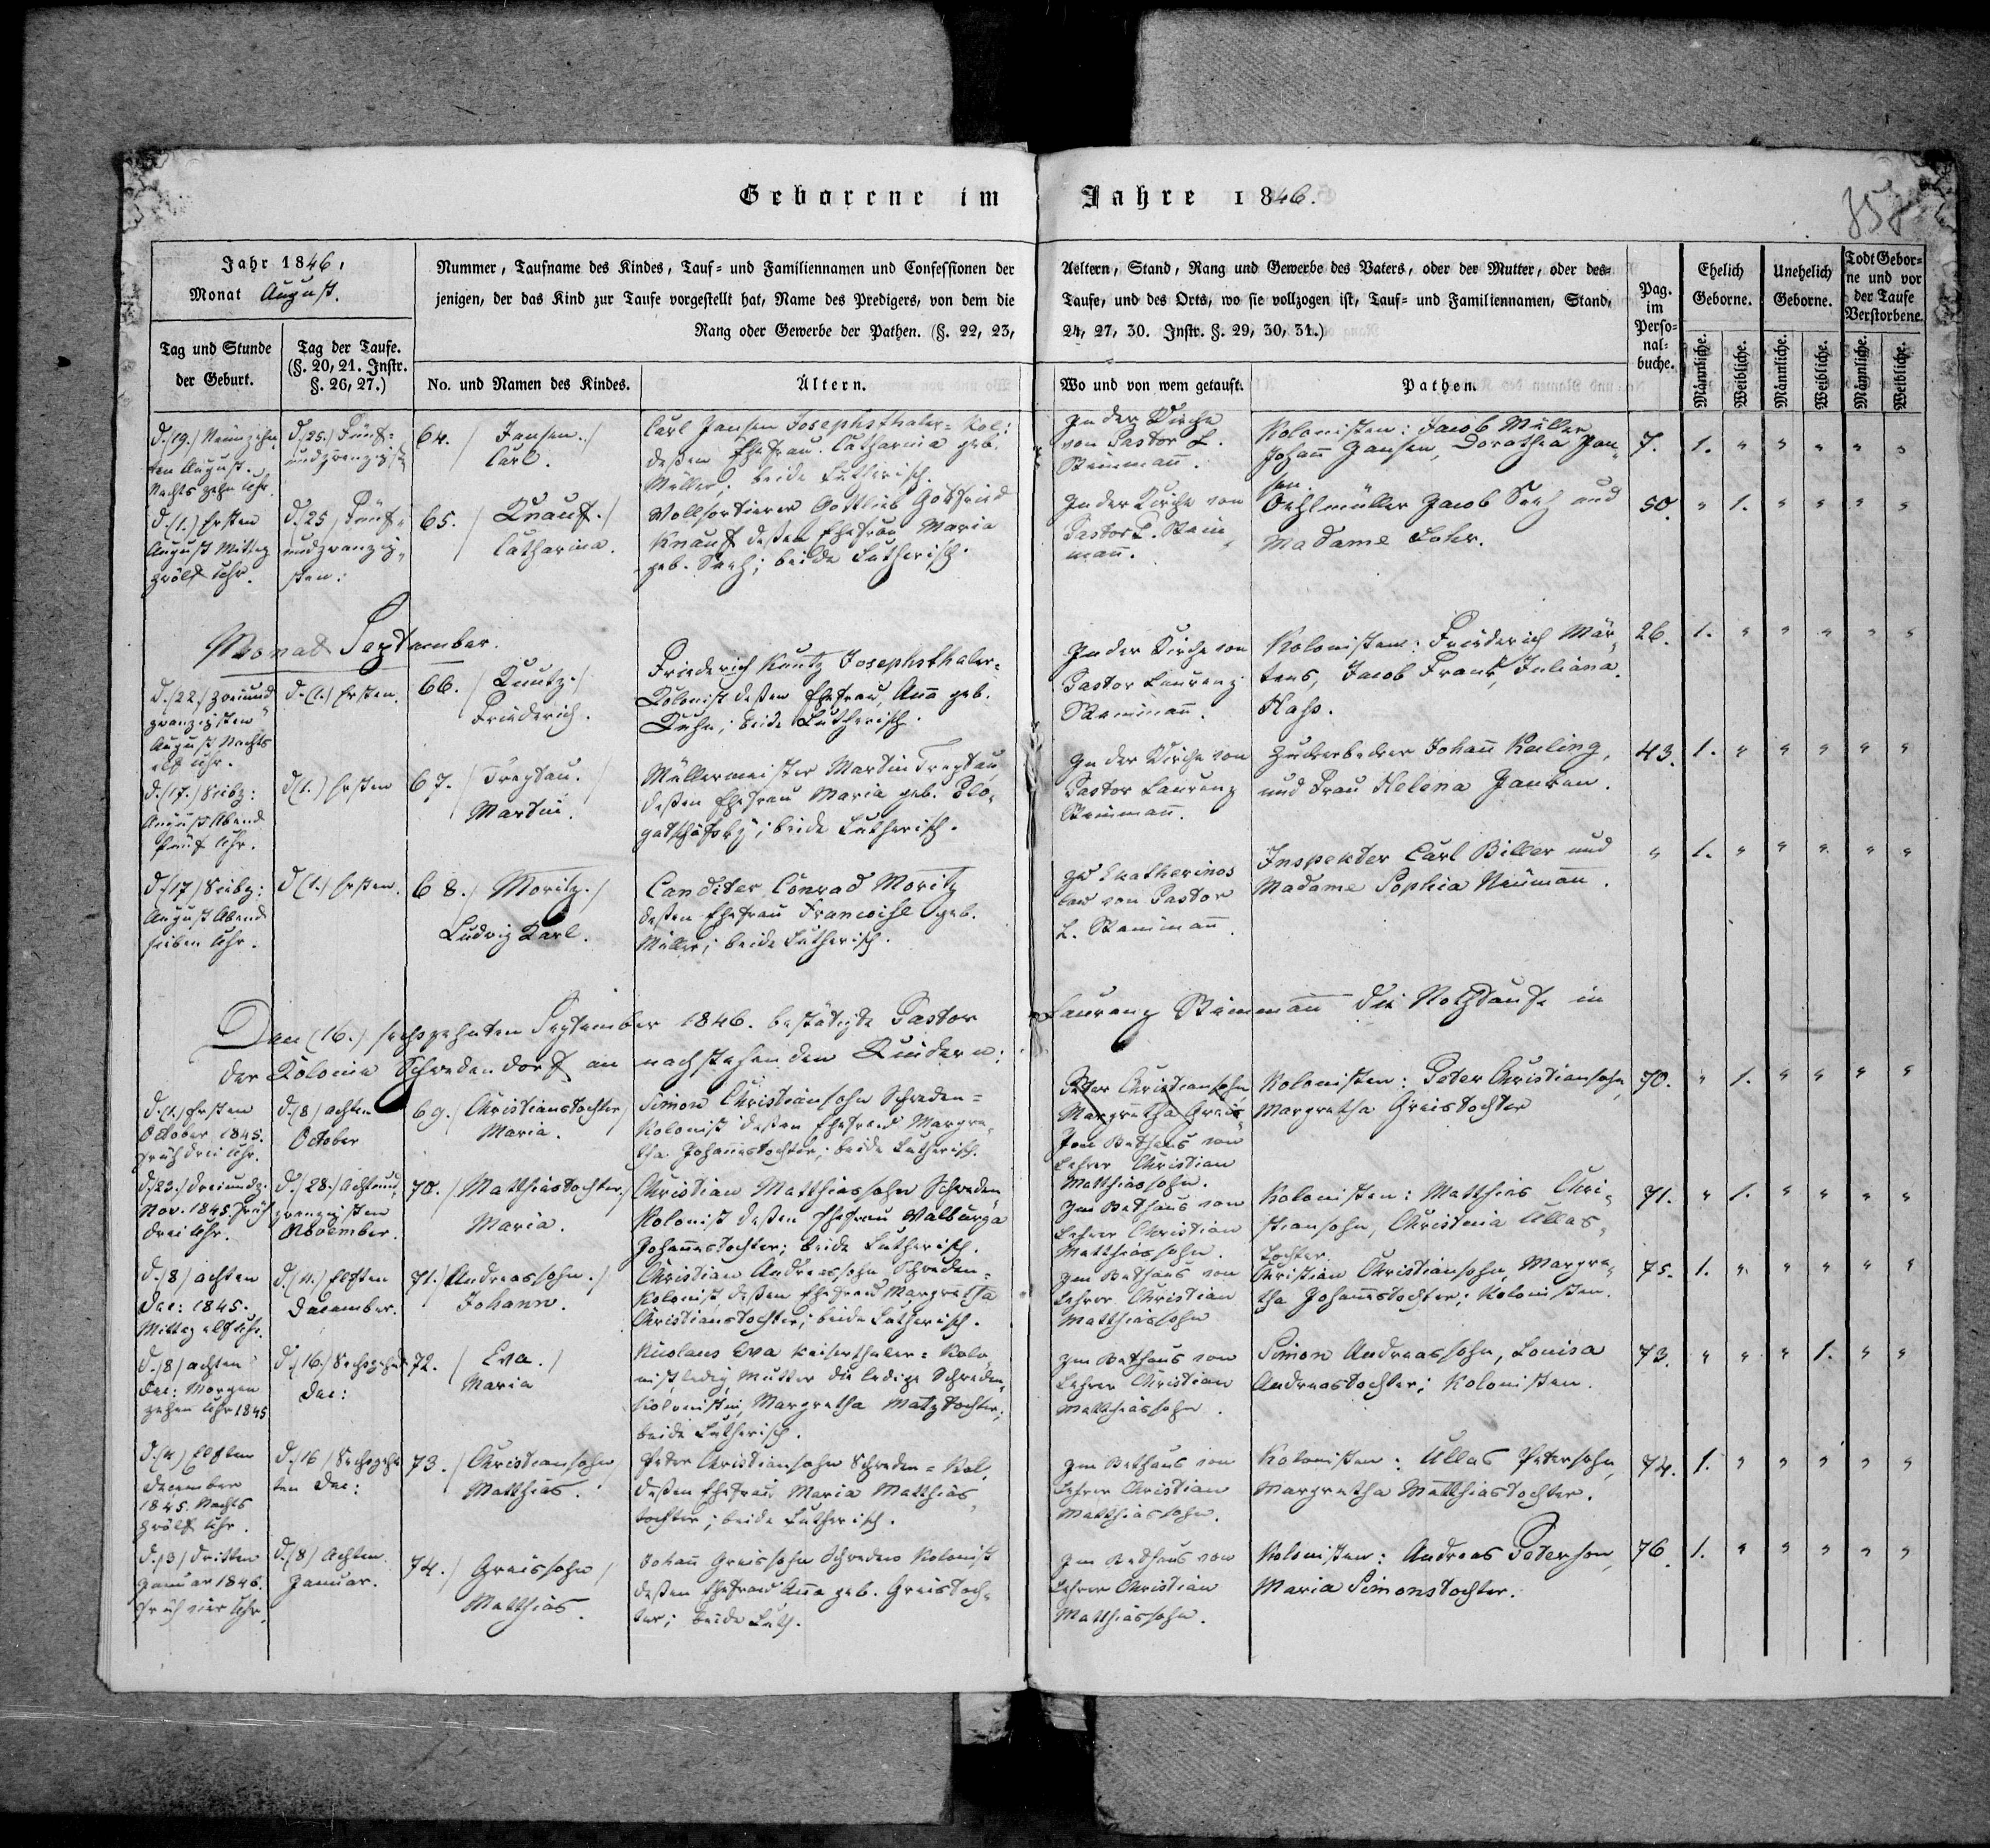 Geborene im Jahre 1846.
358
Jahr 1846,
Monat August.
Tag und Stunde
der Geburt.
Tag der Taufe.
(§. 20, 21. Instr.
§. 26, 27.)
Nummer, Taufname des Kindes, Tauf- und Familiennamen und Confessionen der
jenigen, der das Kind zur Taufe vorgestellt hat, Name des Predigers, von dem die
Rang oder Gewerbe der Pathen. (§. 22, 23,
No. und Namen des Kindes.
Ältern.
Aeltern, Stand, Rang und Gewerbe des Vaters, oder der Mutter, oder des-
Taufe, und des Orts, wo sie vollzogen ist, Tauf- und Familiennamen, Stand,
24, 27, 30. Instr. §. 29, 30, 31.)
Wo und von wem getauft.
Pathen.
Pag.
im
Perso-
nal-
buche.
Ehelich
Geborne.
Unehelich
Geborne.
Todt Gebor-
ne und vor
der Taufe
Verstorbene.
Männliche.
Weibliche.
Männliche.
Weibliche.
Männliche.
Weibliche.
d. (19.) Neunzehn-
ten August.
Nachts zehn Uhr.
d. (25.) Fünf-
undzwanzigsten
64. / Jansen. /
Carl.
Carl Jansen Josephsthaler-Kol:
deßen Ehefrau Catharina geb.
Müller; beide Lutherisch.
In der Kirche
von Pastor L.
Steinmañ.
Kolonisten: Jacob Müller
Johañ Jansen, Dorothea Jan-
sen.
7. 1. " " " " "
d. (1.) Ersten
August Mittag
zwölf Uhr.
d. 25 / Fünf-
undzwanzig-
sten:
65. / Knauf. /
Catharina.
Wollsortierer Gottlieb Gottfried
Knauf deßen Ehefrau Maria
geb. ; beide Lutherisch.
In der Kirche von
Pastor L. Stein-
mañ.
Oehlmüller Jacob und
Madame Lohr.
50. " 1. " " " "
Monat September.
d. (22.) zweiund
zwanzigsten
August Nachts
elf Uhr.
d. (1.) Ersten.
66. / Kuntz. /
Friederich.
Friederich Kuntz Josephsthaler-
Kolonist deßen Ehefrau, Aña geb.
Kuhn; beide Lutherisch.
In der Kirche von
Pastor Laurenz
Steinmañ.
Kolonisten: Friederich Mär-
tens, Jacob Frank, Juliana
Haß.
26. 1. " " " " "
d. (17.) Siebz:
August Abend
fünf Uhr.
d. (1.) Ersten
67. / Treptau. /
Martin.
Müllermeister Martin Treptau,
deßen Ehefrau Maria geb.
beide Lutherisch.
In der Kirche von
Pastor Laurenz
Steinmañ.
Zuckerbecker Johañ Keeling,
und Frau Helena Janken.
43. 1. " " " " "
d. (17) Siebz:
August Abend
sieben Uhr.
d. (1.) Ersten.
68. / Moritz. /
Ludwig Karl.
Canditer Conrad Moritz
deßen Ehefrau geb.
Müller; beide Lutherisch.
zu Ekatherinos
law von Pastor
L. Steinmañ.
Inspekter Carl Biller und
Madame Sophia Neumañ.
" 1. " " " " "
Den (16.) sechszehnten September 1846. bestätigte Pastor Laurenz Steinmañ die Nothtaufe in
der Kolonie Schwedendorf an nachstehenden Kindern:
d. (1.) Ersten
October 1845.
früh drei Uhr.
d. (8) achten
October
69. / Christianstochter /
Maria.
Simon Christiansohn Schweden-
Kolonist deßen Ehefrau Margre-
tha Johañestochter; beide Lutherisch.
Peter Christiansohn
Margretha Greis
Im Bethaus von
Lehrer Christian
Matthiassohn.
Kolonisten: Peter Christiansohn,
Margretha Greistochter
70. " 1. " " " "
d. (23.) dreiundz:
Nov. 1845. früh
drei Uhr.
d. (28.) Achtund
zwanzigsten
November.
70. / Matthiastochter. /
Maria.
Christian Matthiassohn Schweden
Kolonist deßen Ehefrau Walburga
Johañestochter; beide Lutherisch.
Im Bethaus von
Lehrer Christian
Matthiassohn.
Kolonisten: Matthias Chri-
stiansohn, Christina Ullas-
tochter.
71. " 1. " " " "
d. (8) achten
Dec: 1845.
Mittag elf Uhr.
d. (11.) Elften
December.
71. / Andreassohn. /
Johann.
Christian Andreassohn Schweden-
Kolonist, deßen Ehefrau Margretha
Christianstochter; beide Lutherisch.
Im Bethaus von
Lehrer Christian
Matthiassohn
Christian Christiansohn, Margre-
tha Johañestochter; Kolonisten.
75. 1. " " " " "
d. (8) achten
Dec: Morgen
zehen Uhr 1845
d. (16.) Sechszehn
Dec:
72. / Eva. /
Maria
Nicolaus Eva Kaiserthaler-Kolo-
nist, ledig, Mutter die ledige Schweden,
Kolonistin, Margretha Matztochter;
beide Lutherisch.
Im Bethaus von
Lehrer Christian
Matthiassohn.
Simon Andreassohn, Louisa
Andreastochter; Kolonisten.
73. " " " 1. " "
d. (11) Elften
December
1845. Nachts
zwölf Uhr.
d. (16) Sechszehn
ten Dec:
73. / Christiansohn /
Matthias.
Peter Christiansohn Schweden-Kol.
deßen Ehefrau Maria Matthias-
tochter; beide Lutherisch.
Im Bethaus von
Lehrer Christian
Matthiassohn.
Kolonisten: Ullas Petersohn,
Margretha Matthiastochter.
74. 1. " " " " "
d. (3) dritten
Januar 1846.
früh vier Uhr.
d. (8) Achten
Januar.
74. / Greissohn /
Matthias.
Johañ Greissohn Schweden Kolonist
deßen Ehefrau Aña geb. Greistoch-
ter; beide Luth.
Im Bethaus von
Lehrer Christian
Matthiassohn.
Kolonisten: Andreas Peterson,
Maria Simonstochter.
76. 1. " " " " "